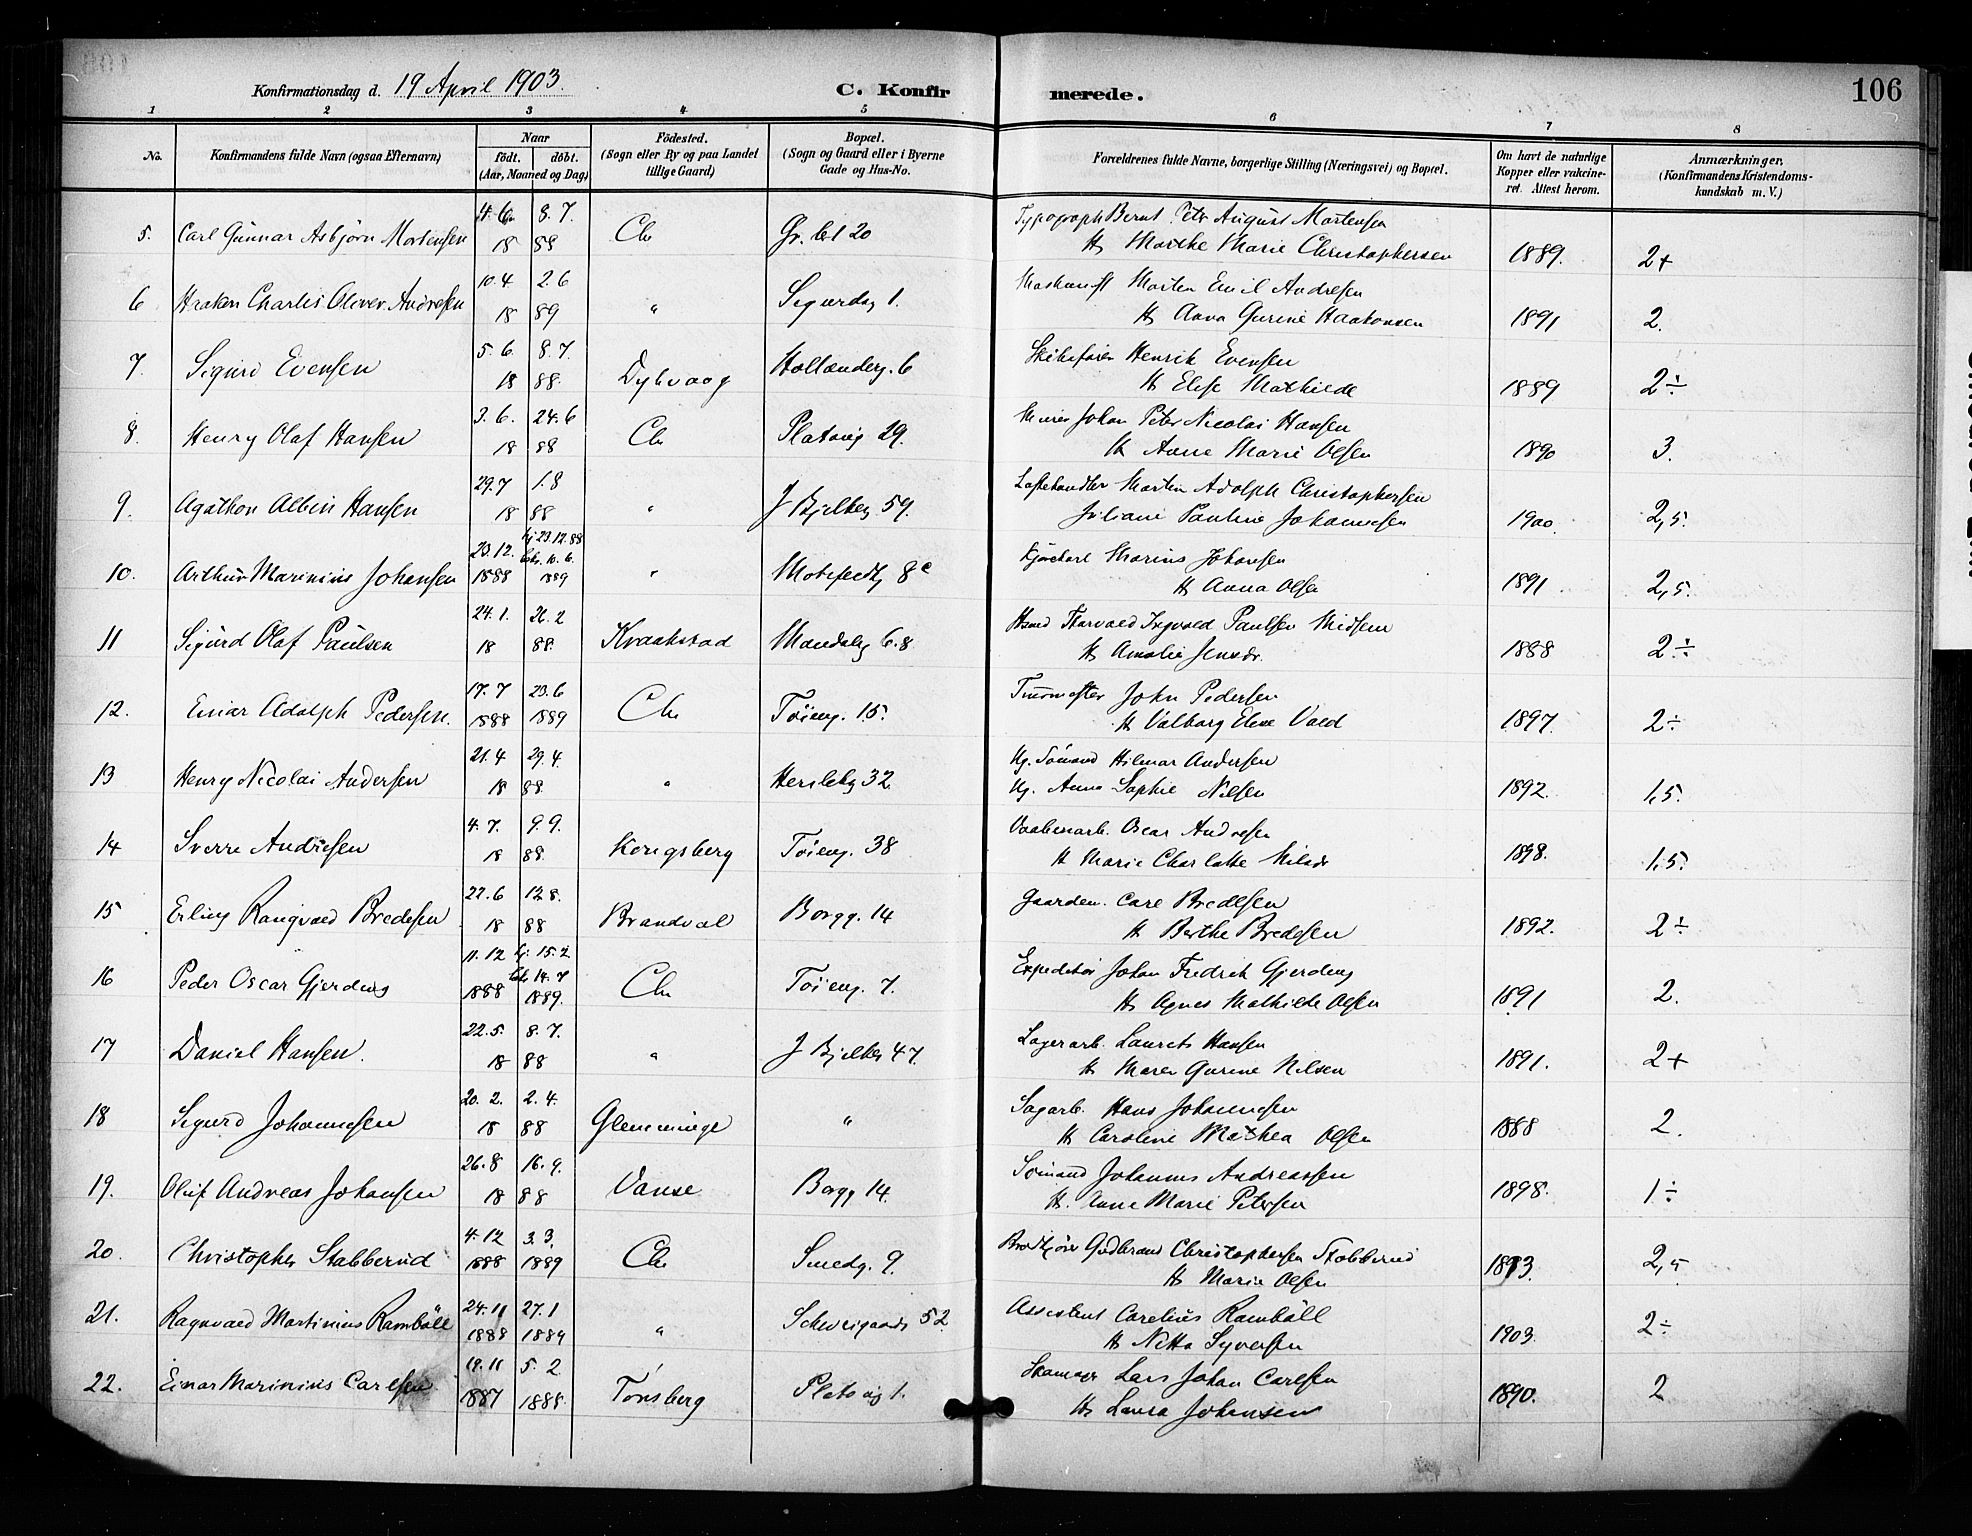 Konfirmationsdag d. 19 April 1903. C. Konfirmerede. 106
1 2 3 4 5 6 7 8
No. Konfirmandens fulde Navn (ogsaa Efternavn) Naar födt. döbt. (Aar, Maaned og Dag) Födested. (Sogn eller By og paa Landet tillige Gaard) Bopæl. (Sogn og Gaard eller i Byerne Gade og Hus-No. Forældrenes fulde Navne, borgerlige Stilling (Næringsvei) og Bopæl. Om havt de naturlige Kopper eller vakcineret. Attest herom. Anmærkninger, (Konfirmandens Kristendomskundskab m. V.)
4. 6. 8. 7. Typograph Bernt Petr August Mortensen
5. Carl Gunnar Asbjörn Mortensen 18 88 Chr Gr. bel 20 H Marthe Marie Christophersen 1889. 2+
10.4 2.6 Maskinist Morten Emil Andresen
6 Haakon Charles Oliver Andresen 18 89 " Sigurdsg 1. H Anna Gurine Haakonsen 1891 2.
5. 6. 8. 7. Skibsförer Henrik Evensen
7. Sigurd Evensen 18 88. Dybvaag Hollænderg. 6 H Elise Mathilde 1889 2÷
3. 6. 24.6 Murer Johan Peter Nicolai Hansen
8. Henry Olaf Hansen 18 88 Chr Platoug 29. H Anne Marie Olsen 1890 3.
29.7 1.8 Martin Adolph Christophersen
9. Agathon Albin Hansen 18 88 " J Bjelkeg 59. Juliane Pauline Johannesen 1900 2,5.
23.12. hj 23.12.88 bekr. 10. 6. Kjörekarl Marius Johansen
10. Arthur Marinius Johansen 1888 1889 " Motzfeldtg 8c H Anna Olsen 1891 2,5.
24.1. 26.2 Thorvald Ingvald Paulsen
11 Sigurd Olaf Paulsen 18 88. Kraakstad Mandalsg 6.8 H Amalie Jensdr. 1888 2÷
17. 7 23.6 John Pedersen
12. Einar Adolph Pedersen. 1888 1889 Chr Töieng. 15. H Valborg Elene Vold 1897. 2÷
21.4 29.4. Ug. Sömand Hilmar Andersen
13 Henry Nicolai Andersen 18 88. " Herslebg 32. Ug. Anna Sophie Nilsen 1892. 1,5.
4. 7. 9. 9. Vaabenarb. Oscar Andresen
14 Sverre Andresen 18 88. Kongsberg Töieng. 38 H Marie Charlotte Nilsdr 1898. 1,5.
22.6 12.8. Gaarden. Carl Bredesen
15 Erling Rangvald Bredesen 18 88 Brandval Borgg. 14 H Berthe Bredesen 1892. 2÷
11. 12 hj. 15.2 bekr 14.7 Expeditör Johan Fredrik Gjerdung
16 Peder Oscar Gjerdung 1888 1889. Chr Töieng. 7. H Agnes Mathilde Olsen 1891 2.
22.5. 8. 7. Lagerarb. Laurets Hansen
17 Daniel Hansen. 18 88 " J Bjelkeg 47. H Maren Gurine Nilsen 1891. 2+
20. 2. 2. 4. Sagarb. Hans Johannesen
18 Sigurd Johannesen 18 88 Glemminge " H Caroline Mathea Olsen 1888 2.
26.8 16. 9. Sömand Johannes Andreassen
19. Oluf Andreas Johansen 18 88 Vanse Borgg 14. H. Anne Marie Petersen 1898. 1÷
4. 12 3.3. Gudbrand Christophersen Stabberud
20. Christopher Stabberud 1888 1889 Chr Smedg. 9. H Marie Olsen 1893. 2,5
24.11 27.1 Assistent Carelius Ramböll
21. Ragnvald Martinius Ramböll 1888 1889 " Schweigaards 52. H Netta Syversen 1903. 2÷
19.11 5. 2 Skomager Lars Johan Carlsen
22. Einar Marinius Carlsen 1887 1888. Tönsberg Platoug 1. H Laura Johansen 1890. 2